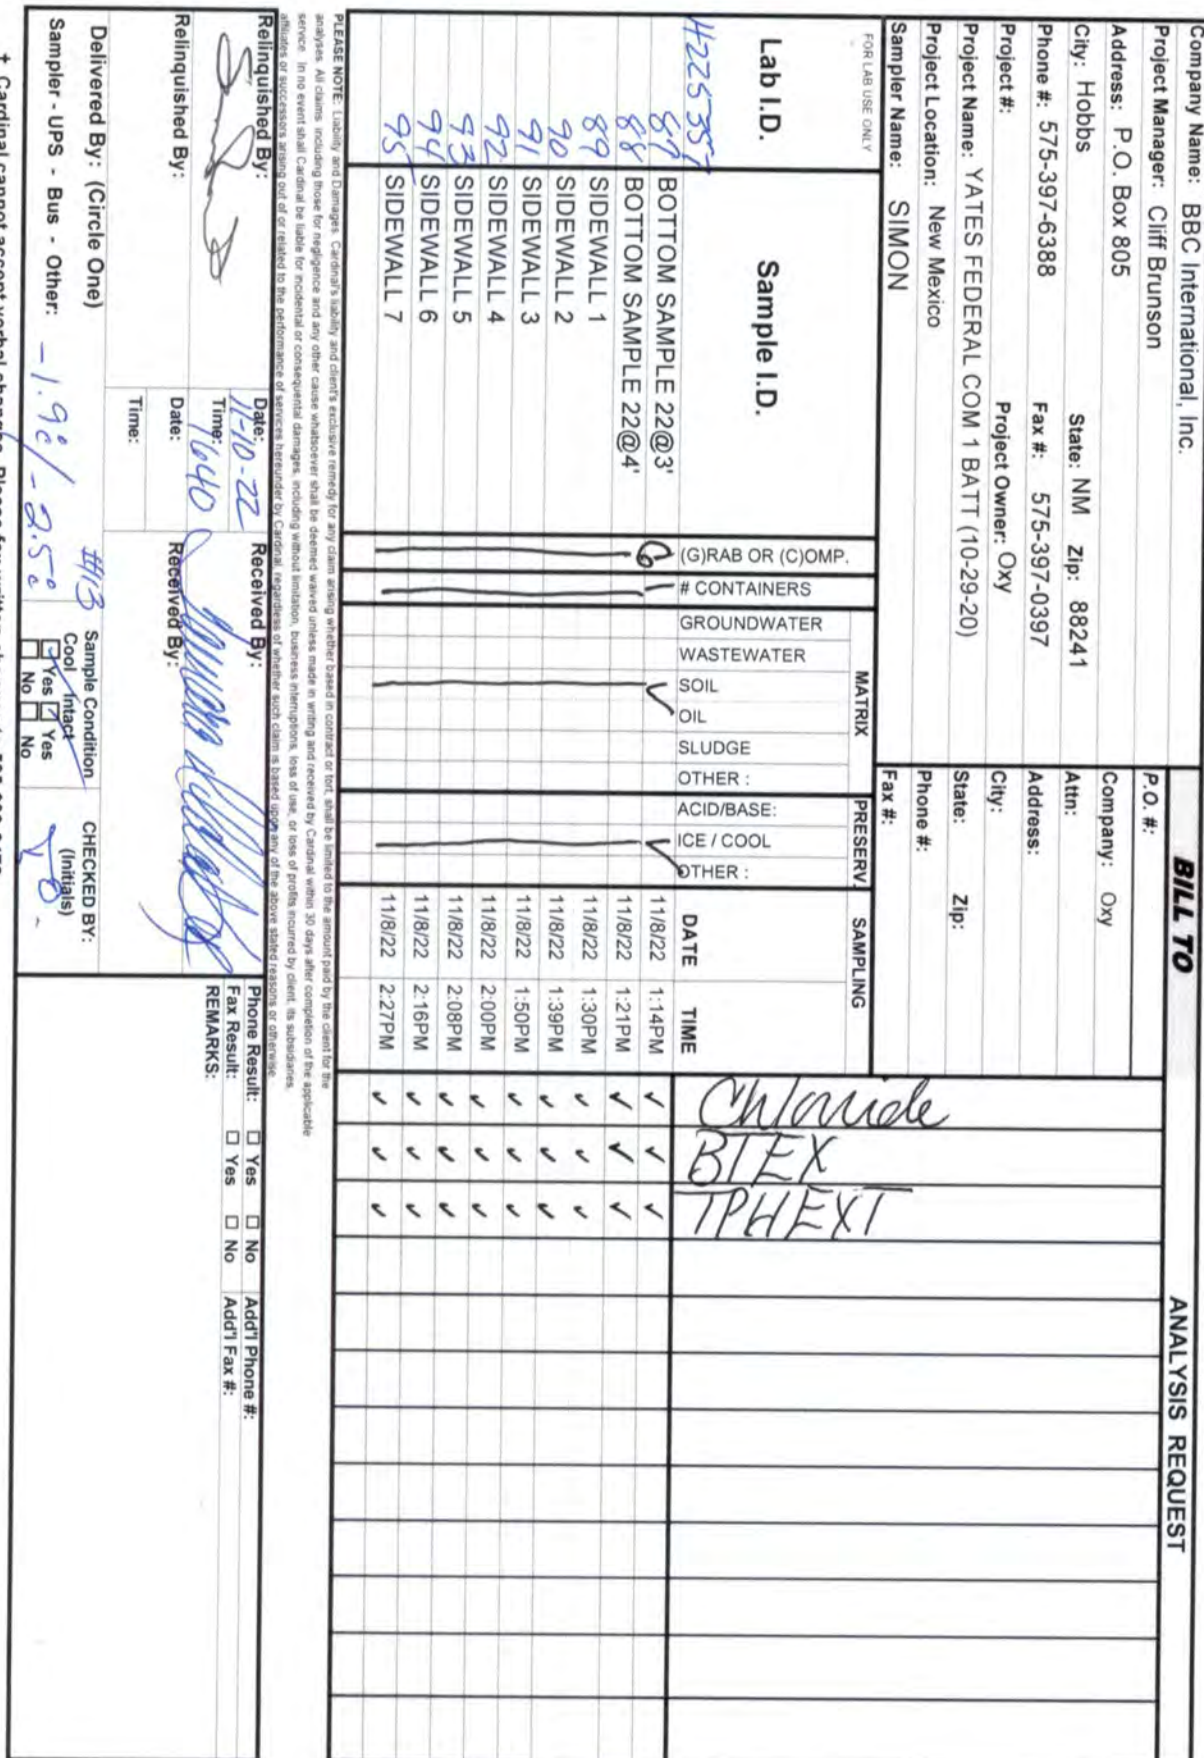 Company Name: BBC International, Inc.
Project Manager: Cliff Brunson
Address: P.O. Box 805
City: Hobbs State: NM Zip: 88241
Phone #: 575-397-6388 Fax #: 575-397-0397
Project #: Project Owner: Oxy
Project Name: YATES FEDERAL COM 1 BATT (10-29-20)
Project Location: New Mexico
Sampler Name: SIMON
BILL TO
P.O. #:
Company: Oxy
Attn:
Address:
City:
State: Zip:
Phone #:
Fax #:
ANALYSIS REQUEST
FOR LAB USE ONLY
Lab I.D.
Sample I.D.
(G)RAB OR (C)OMP.
# CONTAINERS
MATRIX
GROUNDWATER
WASTEWATER
SOIL
OIL
SLUDGE
OTHER :
PRESERV.
ACID/BASE:
ICE / COOL
OTHER :
SAMPLING
DATE TIME
Chloride
BTEX
TPHEXT
H225357
87 BOTTOM SAMPLE 22@3' G 11/8/22 1:14PM ✓ ✓ ✓
88 BOTTOM SAMPLE 22@4' 11/8/22 1:21PM ✓ ✓ ✓
89 SIDEWALL 1 11/8/22 1:30PM ✓ ✓ ✓
90 SIDEWALL 2 11/8/22 1:39PM ✓ ✓ ✓
91 SIDEWALL 3 11/8/22 1:50PM ✓ ✓ ✓
92 SIDEWALL 4 11/8/22 2:00PM ✓ ✓ ✓
93 SIDEWALL 5 11/8/22 2:08PM ✓ ✓ ✓
94 SIDEWALL 6 11/8/22 2:16PM ✓ ✓ ✓
95 SIDEWALL 7 11/8/22 2:27PM ✓ ✓ ✓
PLEASE NOTE: Liability and Damages. Cardinal's liability and client's exclusive remedy for any claim arising whether based in contract or tort, shall be limited to the amount paid by the client for the
analyses. All claims including those for negligence and any other cause whatsoever shall be deemed waived unless made in writing and received by Cardinal within 30 days after completion of the applicable
service. In no event shall Cardinal be liable for incidental or consequental damages, including without limitation, business interruptions, loss of use, or loss of profits incurred by client, its subsidiaries,
affiliates or successors arising out of or related to the performance of services hereunder by Cardinal, regardless of whether such claim is based upon any of the above stated reasons or otherwise.
Relinquished By:
Date: 11-10-22
Time: 1640
Received By:
Relinquished By:
Date:
Time:
Received By:
Phone Result: □ Yes □ No Add'l Phone #:
Fax Result: □ Yes □ No Add'l Fax #:
REMARKS:
Delivered By: (Circle One)
Sampler - UPS - Bus - Other: -1.9c / -2.5c
#113
Sample Condition
Cool Intact
Yes Yes
No No
CHECKED BY:
(Initials)
† Cardinal cannot accept verbal changes. Please fax written changes to